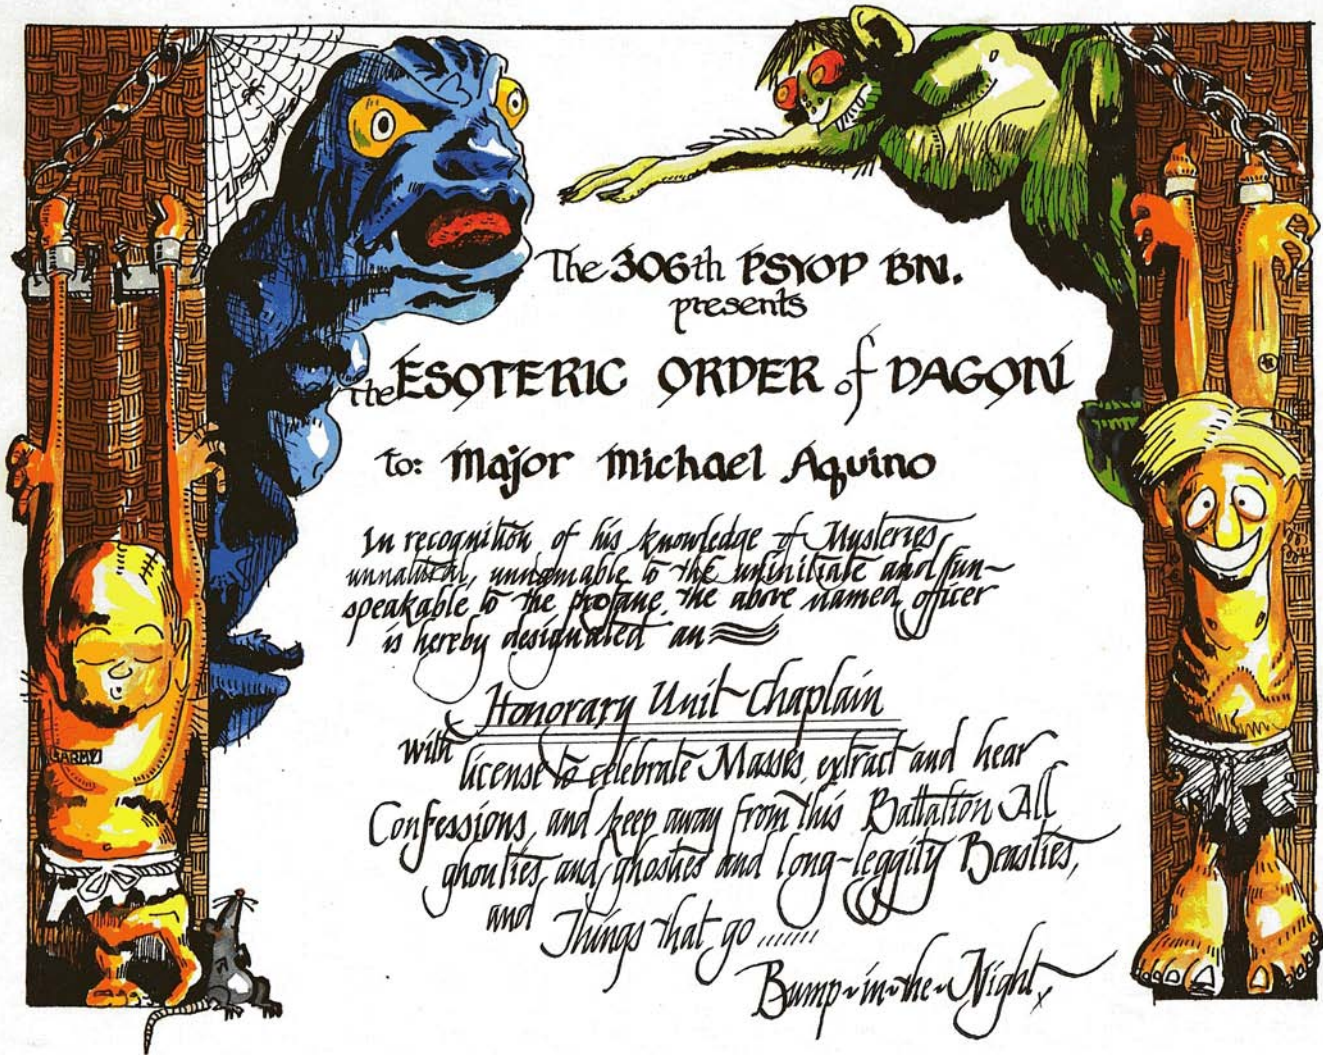 The 306th PSYOP BN.
presents
the ESOTERIC ORDER of DAGON
to: Major Michael Aquino
In recognition of his knowledge of Mysteries
unnatural, unnamable to the uninitiate and un-
speakable to the profane, the above named officer
is hereby designated an
Honorary Unit Chaplain
with license to celebrate Masses, extract and hear
Confessions, and keep away from this Battalion All
ghoulies, and ghosties and long-leggity Beasties,
and Things that go .......
Bump-in-the-Night